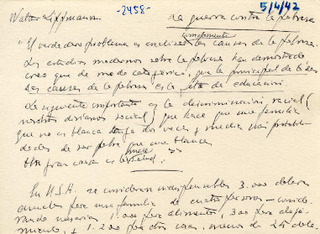 Walter Lippmann -2458- La guerra contra la pobreza 5/4/42
"El verdadero problema es enseñar simplemente las causas de la pobreza.
Los estudios modernos sobre la pobreza han demostrado
creo que de modo categórico, que la principal de
las causas de la pobreza es la falta de educación
La siguiente importante es la discriminación racial (
nuestros divisiones social) que hace que una familia
que no es blanca tenga dos veces y media más probabili-
dades de ser pobre que una blanca
Una gran causa es la salud."
En U.S.A. se consideran indispensables 3.000 dólares
anuales para una familia de cuatro personas - conside-
rando necesarios 1.000 para alimentos, 800 para aloja-
miento, + 1.200 para otras cosas, menos de 25